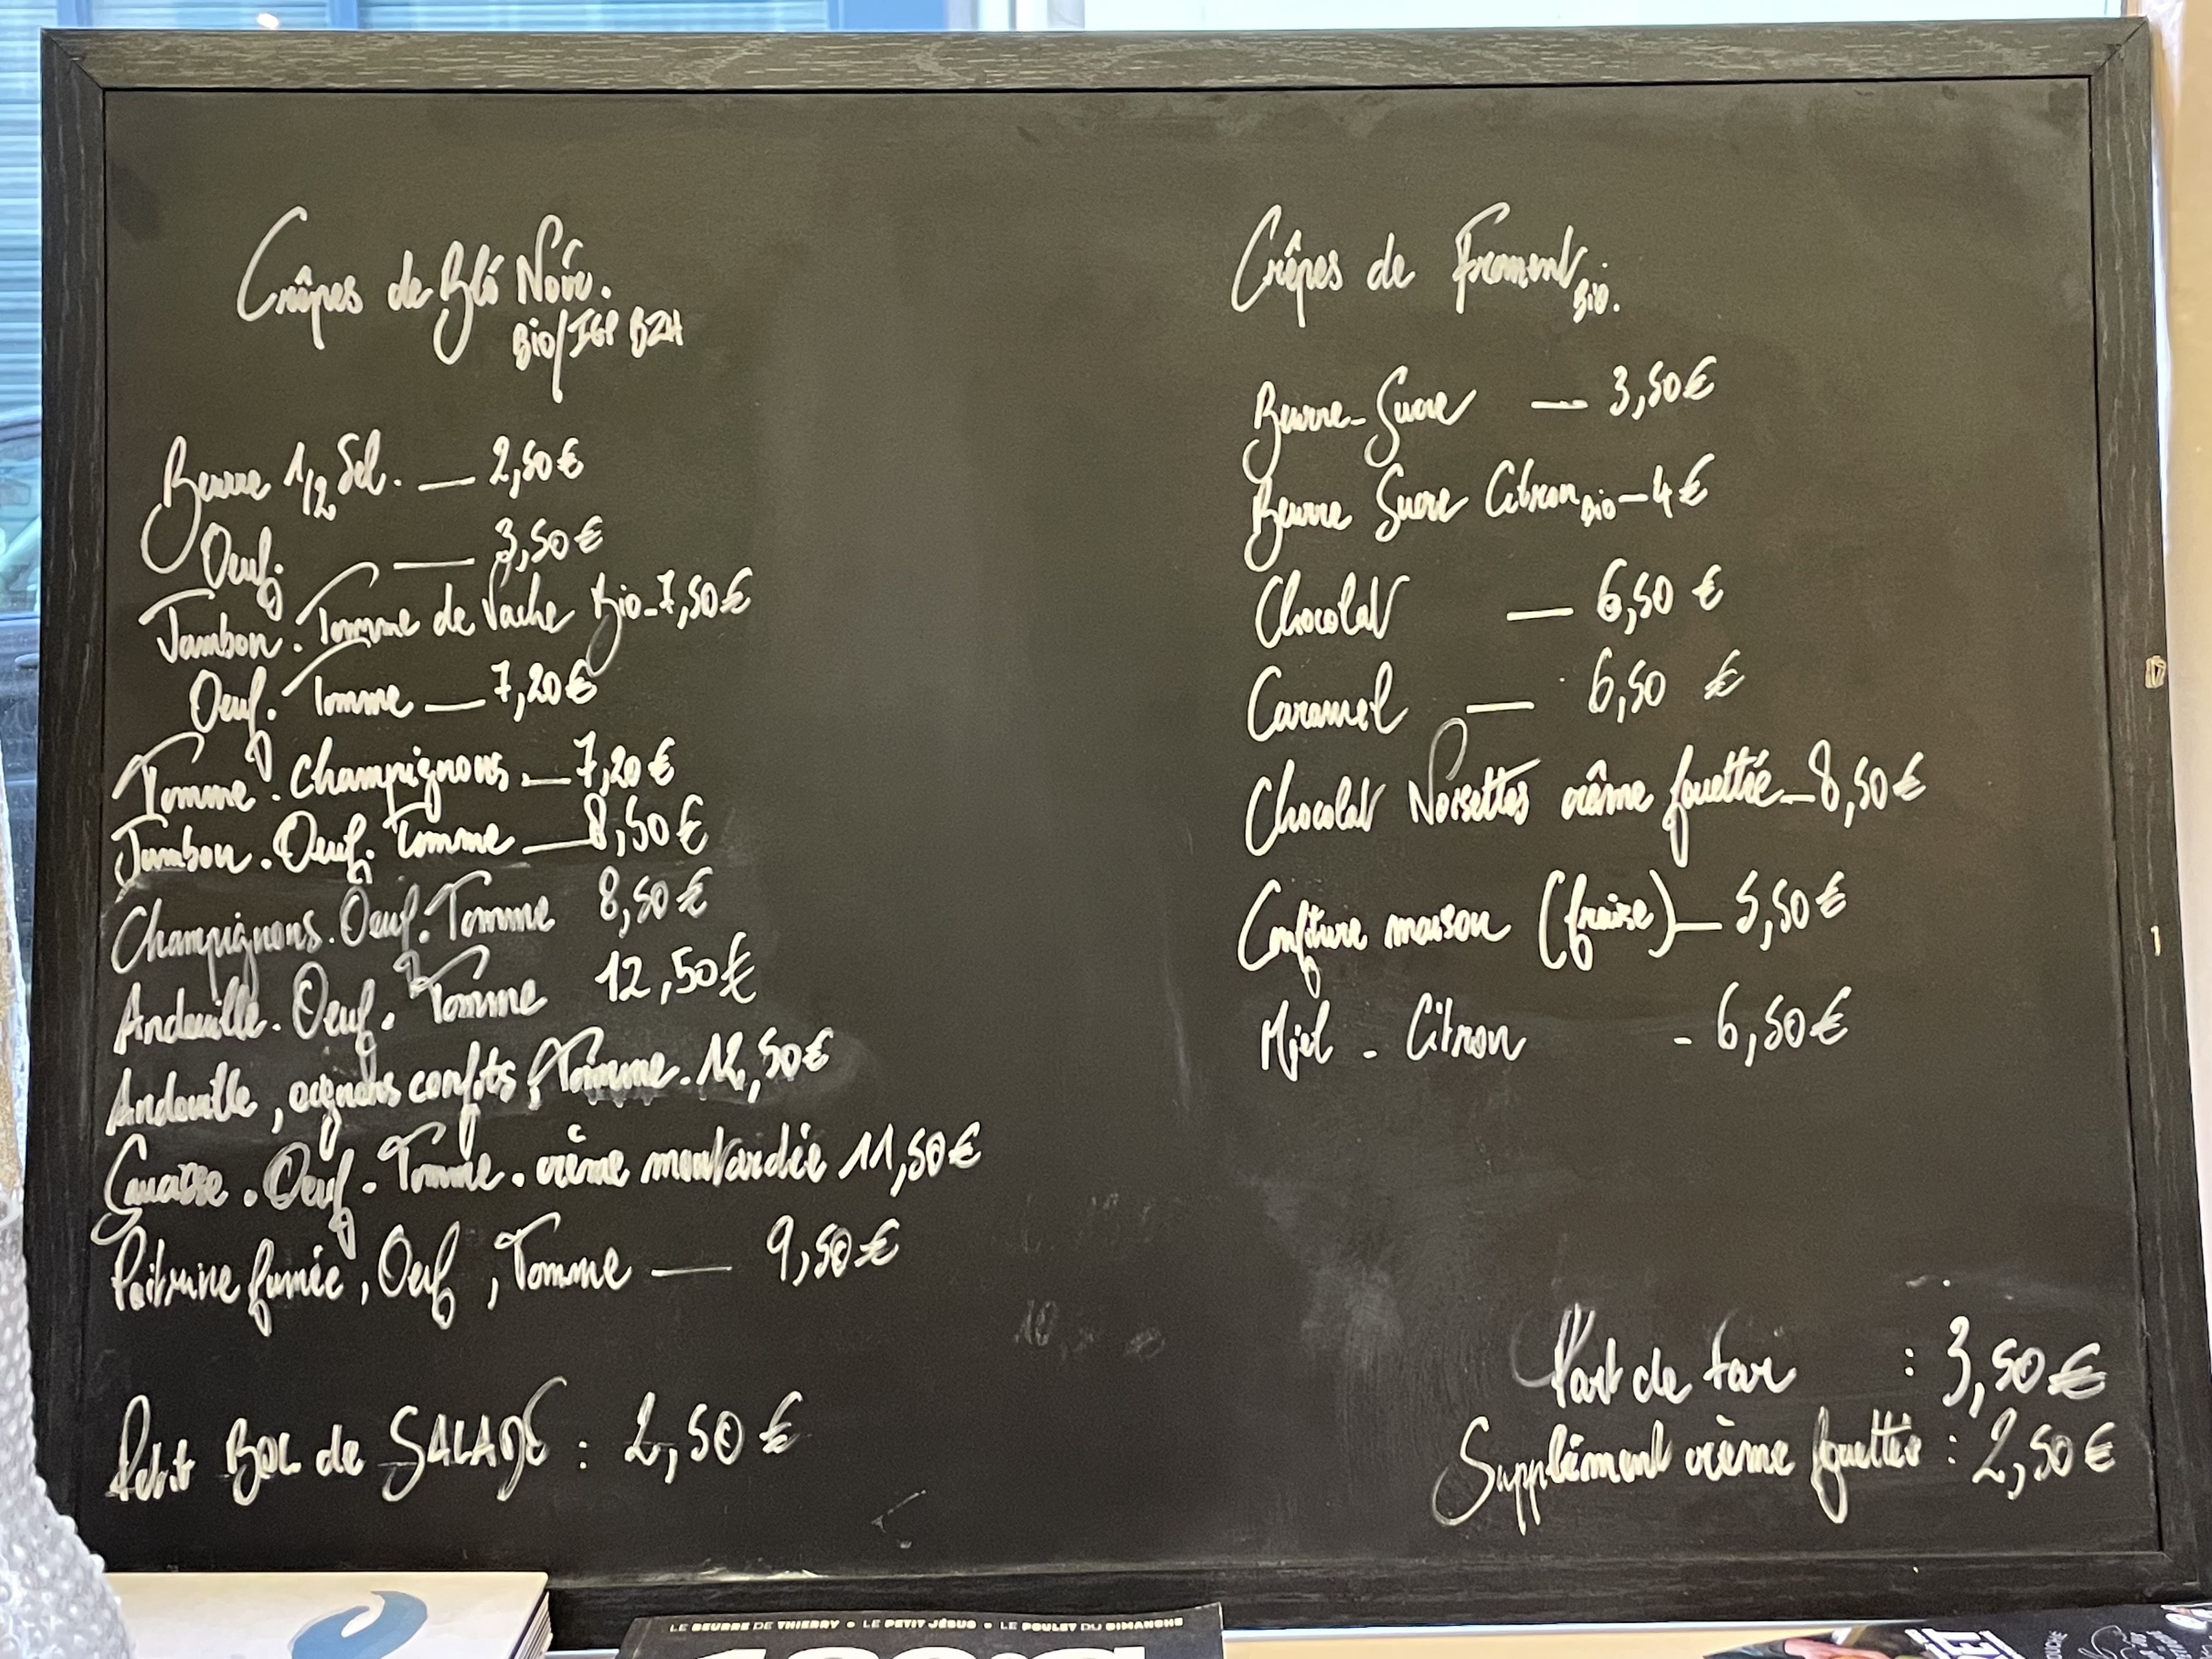 Crêpes de Blé Noir.
Bio/IGP BZH
Beurre 1/2 Sel. — 2,50€
Oeuf. — 3,50€
Jambon. Tomme de Vache Bio - 7,50€
Oeuf. Tomme — 7,20€
Tomme. Champignons. — 7,20€
Jambon. Oeuf. Tomme — 8,50€
Champignons. Oeuf. Tomme 8,50€
Andouille. Oeuf. Tomme 12,50€
Andouille, oignons confits, Tomme. 12,50€
Oeuf. Tomme. crème moutardée 11,50€
Poitrine fumée, Oeuf, Tomme — 9,50€
Petit BOL de SALADE : 2,50€
Crêpes de Froment Bio.
Beurre-Sucre — 3,50€
Beurre Sucre Citron Bio - 4€
Chocolat — 6,50 €
Caramel — 6,50 €
Chocolat Noisettes crème fouettée - 8,50€
Confiture maison (fraise) — 5,50€
Miel - Citron - 6,50€
Part de far : 3,50€
Supplément crème fouettée : 2,50€
LE BEURRE DE THIERRY • LE PETIT JÉSUS • LE POULET DU DIMANCHE